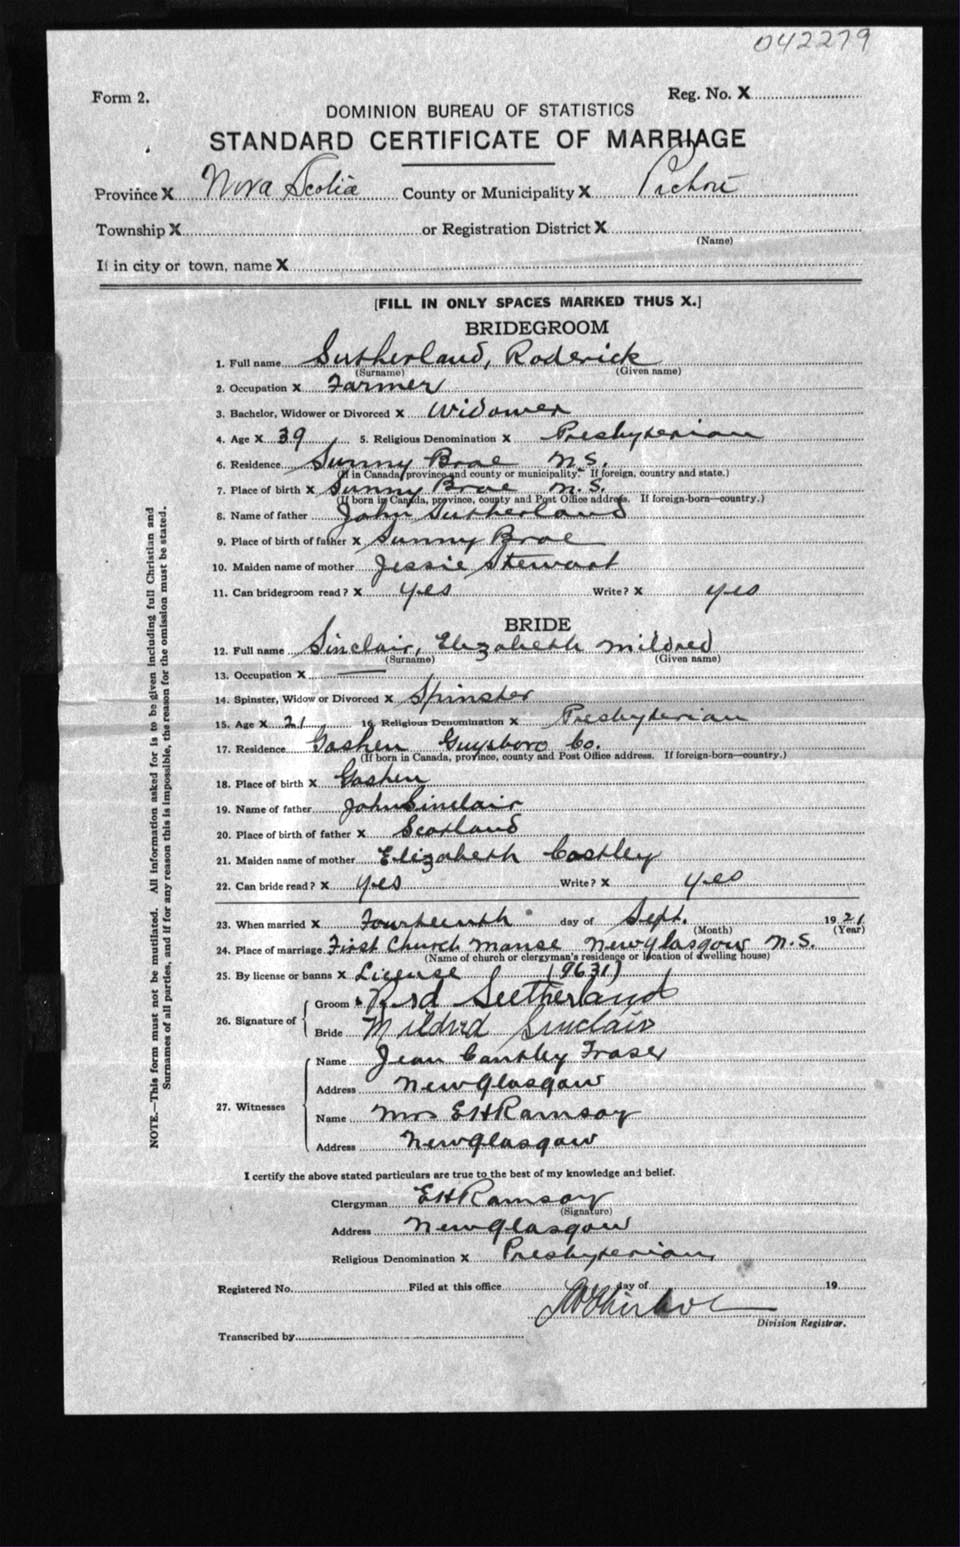 042279
Form 2. Reg. No. X
DOMINION BUREAU OF STATISTICS
STANDARD CERTIFICATE OF MARRIAGE
Province X Nova Scotia County or Municipality X Pictou
Township X or Registration District X
(Name)
If in city or town, name X
[FILL IN ONLY SPACES MARKED THUS X.]
BRIDEGROOM
1. Full name Sutherland, Roderick
(Surname) (Given name)
2. Occupation X Farmer
3. Bachelor, Widower or Divorced X Widower
4. Age X 39 5. Religious Denomination X Presbyterian
6. Residence Sunny Brae N.S.
(If in Canada, province and county or municipality. If foreign, country and state.)
7. Place of birth X Sunny Brae N.S.
(If born in Canada, province, county and Post Office address. If foreign-born—country.)
8. Name of father John Sutherland
9. Place of birth of father X Sunny Brae
10. Maiden name of mother Jessie Stewart
11. Can bridegroom read? X yes Write? X yes
BRIDE
12. Full name Sinclair, Elizabeth Mildred
(Surname) (Given name)
13. Occupation X —
14. Spinster, Widow or Divorced X Spinster
15. Age X 21 16 Religious Denomination X Presbyterian
17. Residence Goshen Guysboro Co.
(If born in Canada, province, county and Post Office address. If foreign-born—country.)
18. Place of birth X Goshen
19. Name of father John Sinclair
20. Place of birth of father X Scotland
21. Maiden name of mother Elizabeth
22. Can bride read? X yes Write? X yes
23. When married X Fourteenth day of Sept. 1921
(Month) (Year)
24. Place of marriage First Church Manse New Glasgow N.S.
(Name of church or clergyman's residence or location of dwelling house)
25. By license or banns X License (9631)
26. Signature of
Groom Sutherland
Bride Mildred Sinclair
27. Witnesses
Name Jean Cantley Fraser
Address New Glasgow
Name Mrs E H Ramsay
Address New Glasgow
I certify the above stated particulars are true to the best of my knowledge and belief.
Clergyman E H Ramsay
(Signature)
Address New Glasgow
Religious Denomination X Presbyterian
Registered No. Filed at this office day of 19
Division Registrar.
Transcribed by
NOTE.—This form must not be mutilated. All information asked for is to be given including full Christian and
Surnames of all parties, and if for any reason this is impossible, the reason for the omission must be stated.